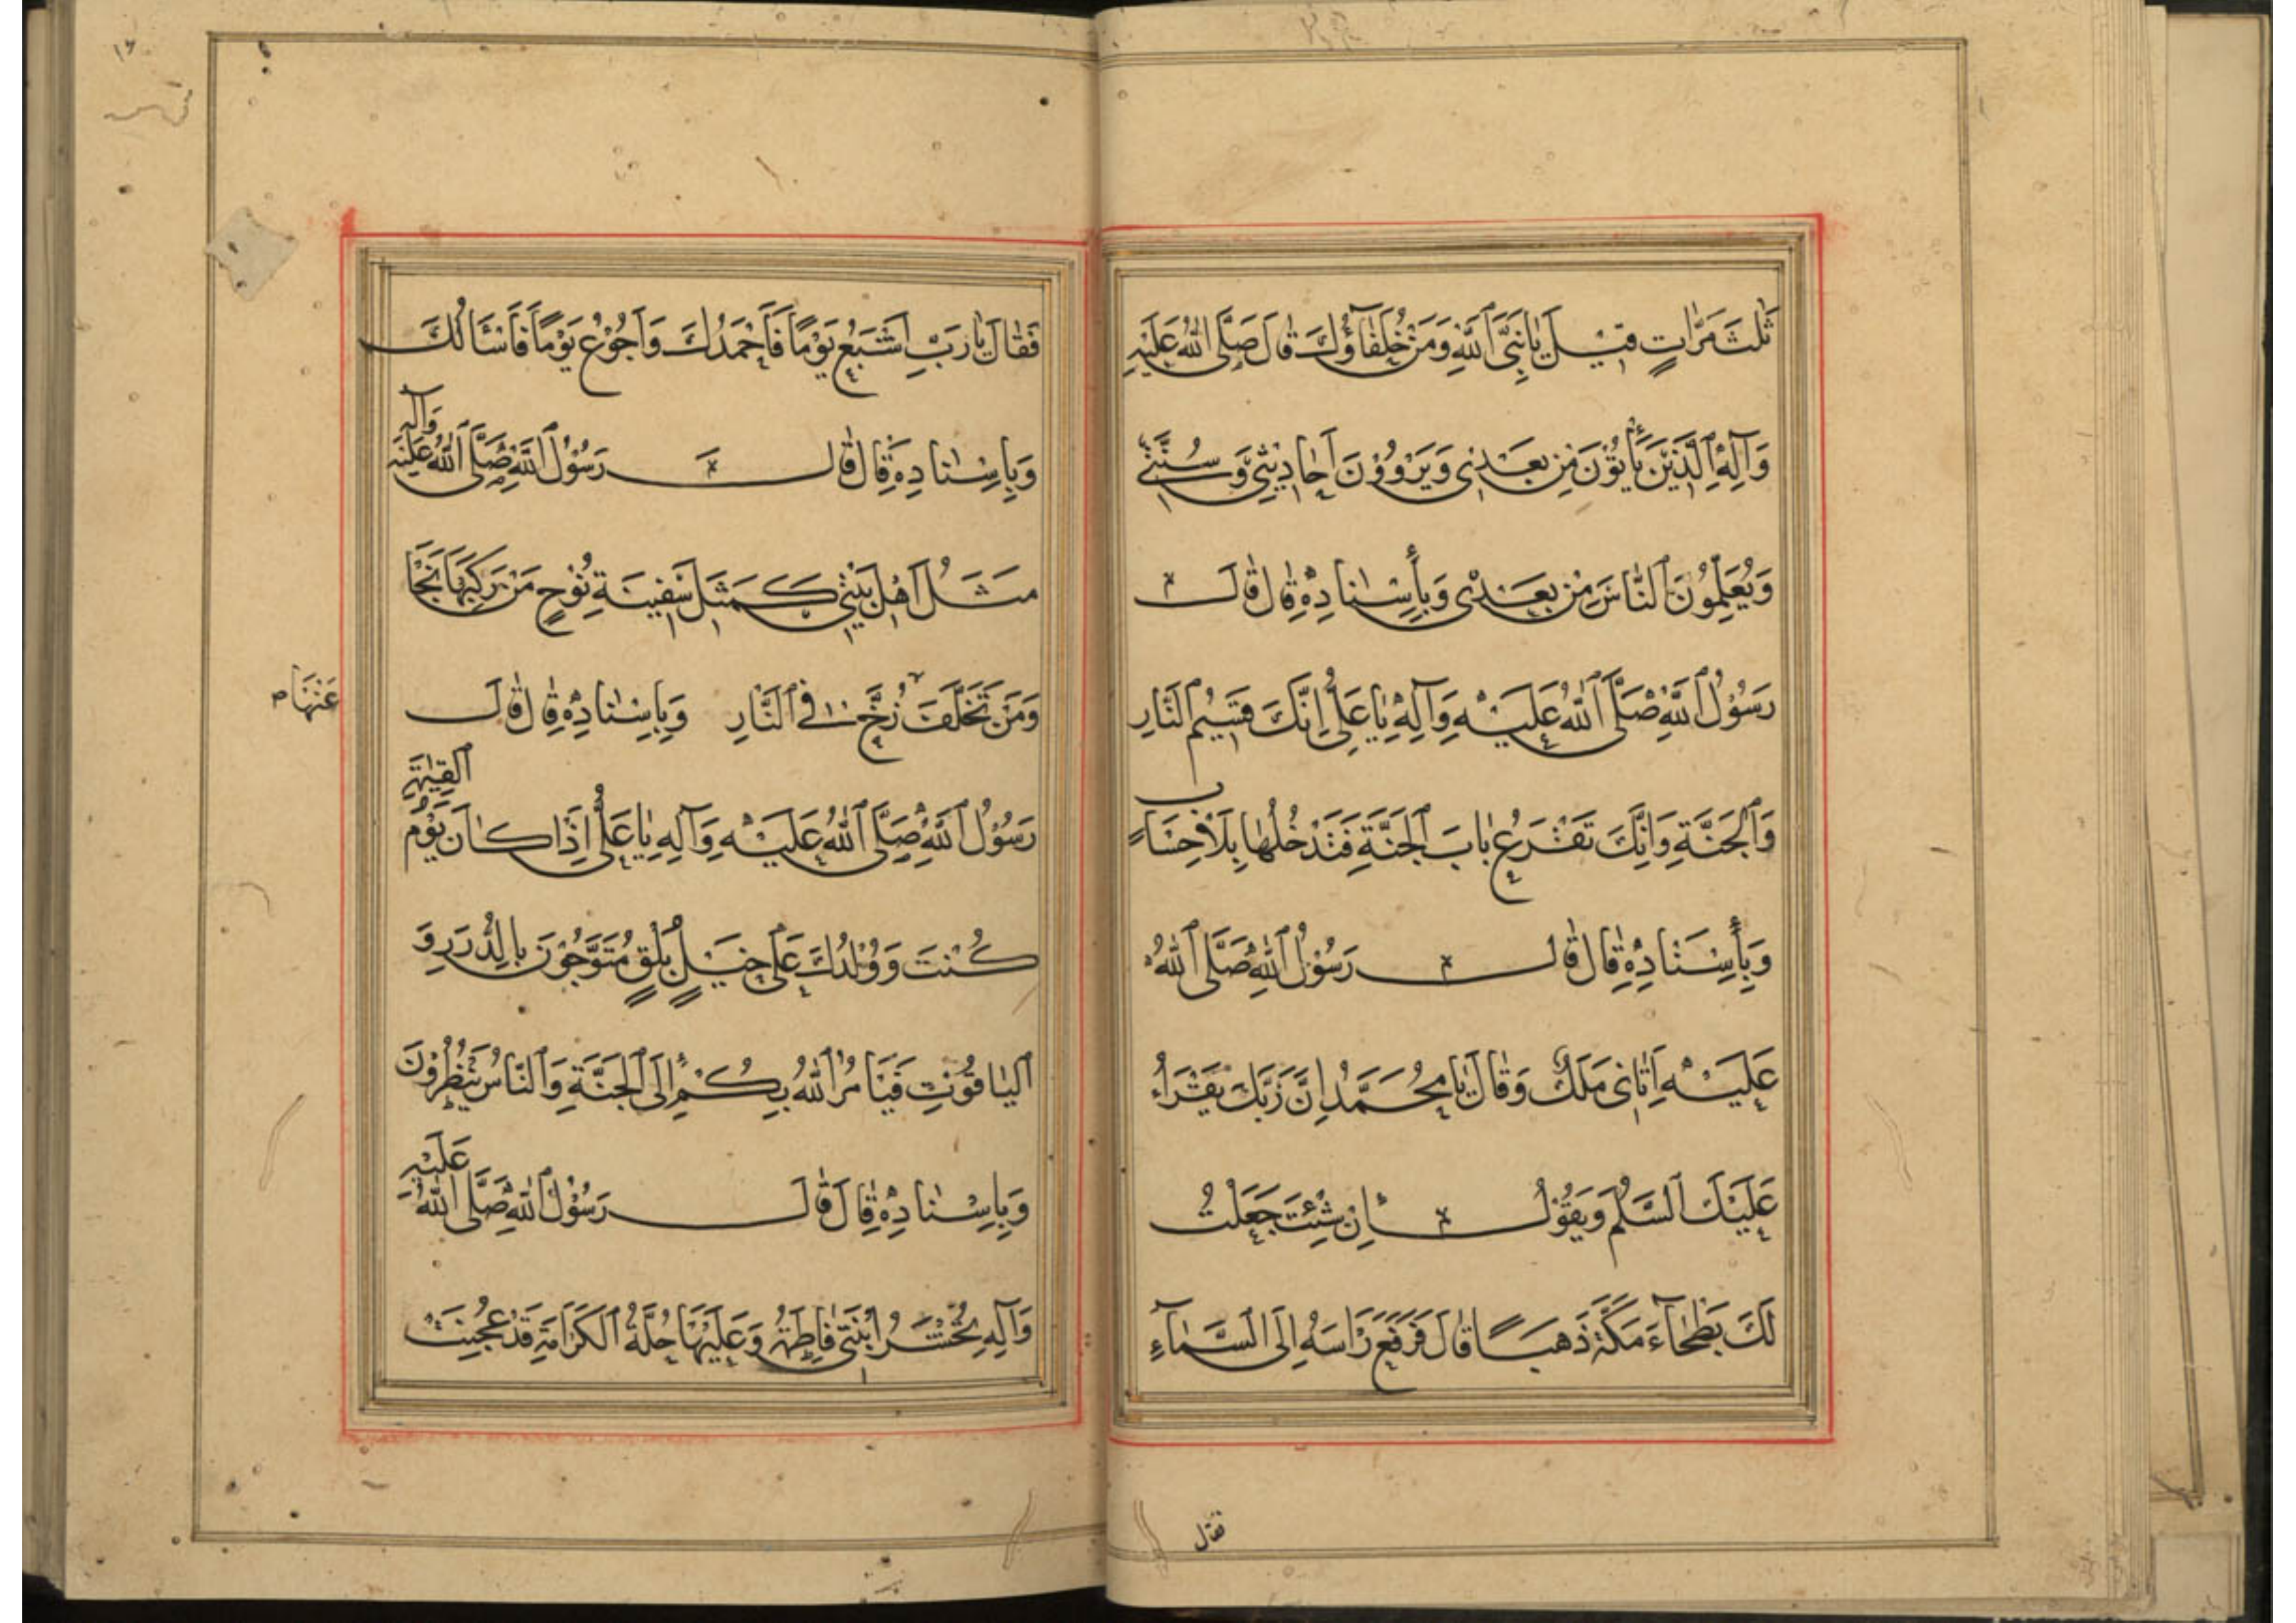 ثَلٰثَ مَرّٰاتٍ قيْلَ يٰا نَبِيَّ ٱللّٰهِ وَمَنْ خُلَفٰآؤُكَ قٰالَ صَلَّى اللّٰهُ عَلَيْهِ
وَآلِهِ ٱلَّذيْنَ يَأْتُوْنَ مِنْ بَعْدى وَيَرْوُوْنَ اَحٰاديْثى وَسُنَّتى
وَيُعَلِّمُوْنَ ٱلنّٰاسَ مِنْ بَعْدى وَبِأِسْنٰادِهِ قٰالَ قٰالَ
رَسُوْلُ ٱللّٰهِ صَلَّى ٱللّٰهُ عَلَيْهِ وَآلِهِ يٰا عَلِىُّ اِنَّكَ قَسيْمُ ٱلنّٰارِ
وَٱلْجَنَّةِ وَاِنَّكَ تَقْرَعُ بٰابَ ٱلْجَنَّةِ فَتَدْخُلُهٰا بِلاٰ حِسٰابٍ
وَبِأِسْنٰادِهِ قٰالَ قٰالَ رَسُوْلُ ٱللّٰهِ صَلَّى ٱللّٰهُ
عَلَيْهِ اَتٰانى مَلَكٌ وَقٰالَ يٰا مُحَمَّدُ اِنَّ رَبَّكَ يَقْرَاُ
عَلَيْكَ ٱلسَّلٰمَ وَيَقُوْلُ اِنْ شِئْتَ جَعَلْتُ
لَكَ بَطْحٰآءَ مَكَّةَ ذَهَباً قٰالَ فَرَفَعَ رَاْسَهُ اِلَى ٱلسَّمٰآءِ
فقال
فَقٰالَ يٰا رَبِّ اَشْبَعُ يَوْماً فَاَحْمَدُكَ وَاَجُوْعُ يَوْماً فَاَسْاَلُكَ
وَبِاِسْنٰادِهِ قٰالَ قٰالَ رَسُوْلُ ٱللّٰهِ صَلَّى ٱللّٰهُ عَلَيْهِ وَآلِهِ
مَثَلُ اَهْلِ بَيْتى كَمَثَلِ سَفيْنَةِ نُوْحٍ مَنْ رَكِبَهٰا نَجٰا
وَمَنْ تَخَلَّفَ زُخَّ فِى ٱلنّٰارِ وَبِاِسْنٰادِهِ قٰالَ قٰالَ
عَنْهٰا
رَسُوْلُ ٱللّٰهِ صَلَّى ٱللّٰهُ عَلَيْهِ وَآلِهِ يٰا عَلِىُّ اِذٰا كٰانَ يَوْمُ ٱلْقِيٰمَةِ
كُنْتَ وَوُلْدُكَ عَلٰى خَيْلٍ بُلْقٍ مُتَوَّجُوْنَ بِالدُّرِّ وَ
ٱلْيٰاقُوْتِ فَيَأمُرُ ٱللّٰهُ بِكُمْ اِلَى ٱلْجَنَّةِ وَٱلنّٰاسُ يَنْظُرُوْنَ
وَبِاِسْنٰادِهِ قٰالَ قٰالَ رَسُوْلُ ٱللّٰهِ صَلَّى ٱللّٰهُ عَلَيْهِ
وَآلِهِ تُحْشَرُ ٱبْنَتى فٰاطِمَةُ وَعَلَيْهٰا حُلَّةُ ٱلْكَرٰامَةِ قَدْ عُجِنَتْ